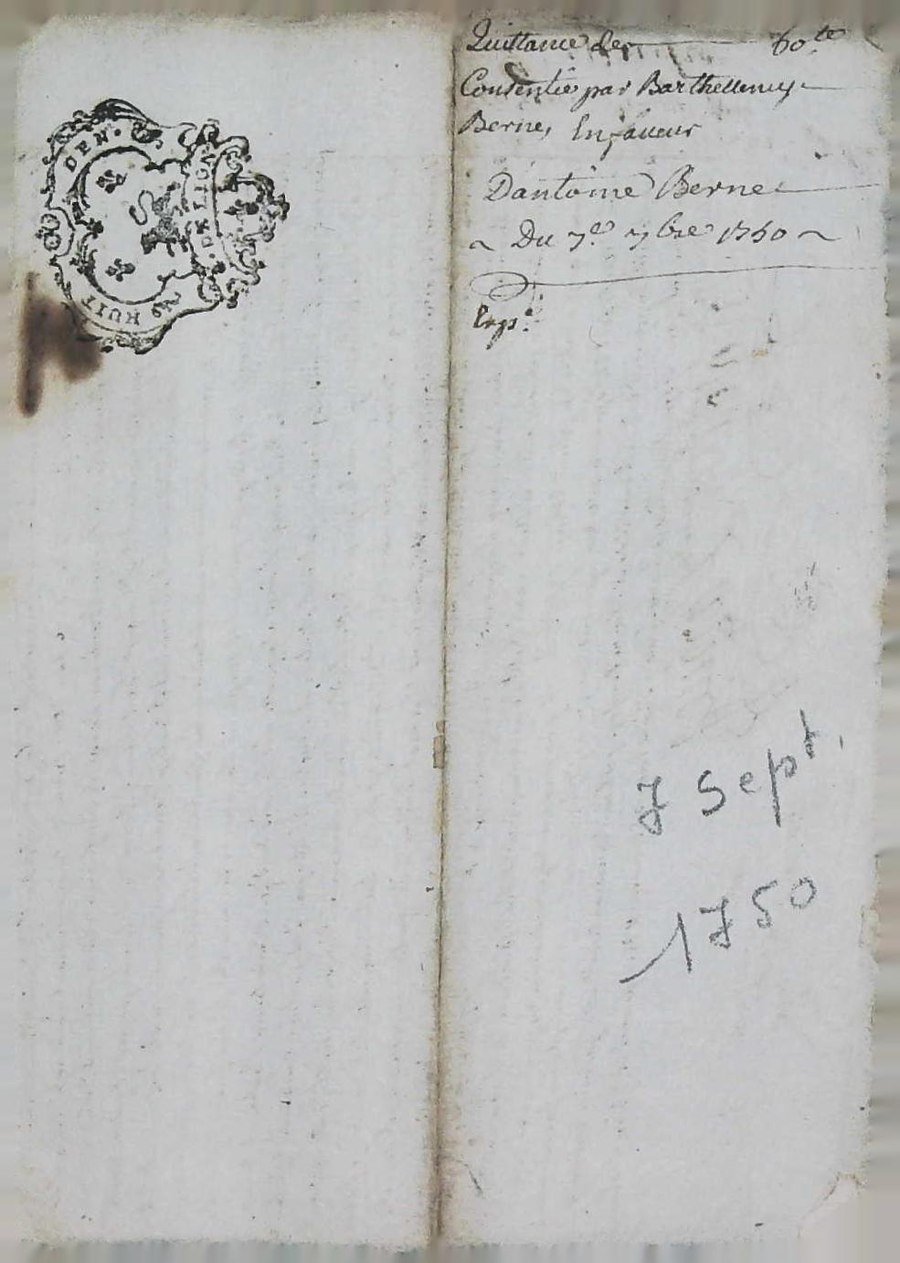 DE LYON.
HUIT DEN.
Quittance de 60.te
Consentie par Barthellemy
Berne, En faveur
Dantoine Berne
~ Du 7.e 7bre 1750 ~
Exp.e
7 Sept.
1750